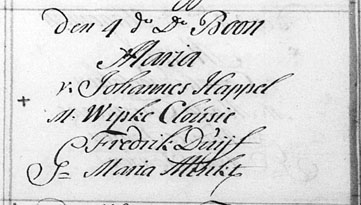 den 4 do Do Boon
Maria
v. Johannes Happel
M. Wipke Clousie
Fredrik Duijf
G= Maria Monkt